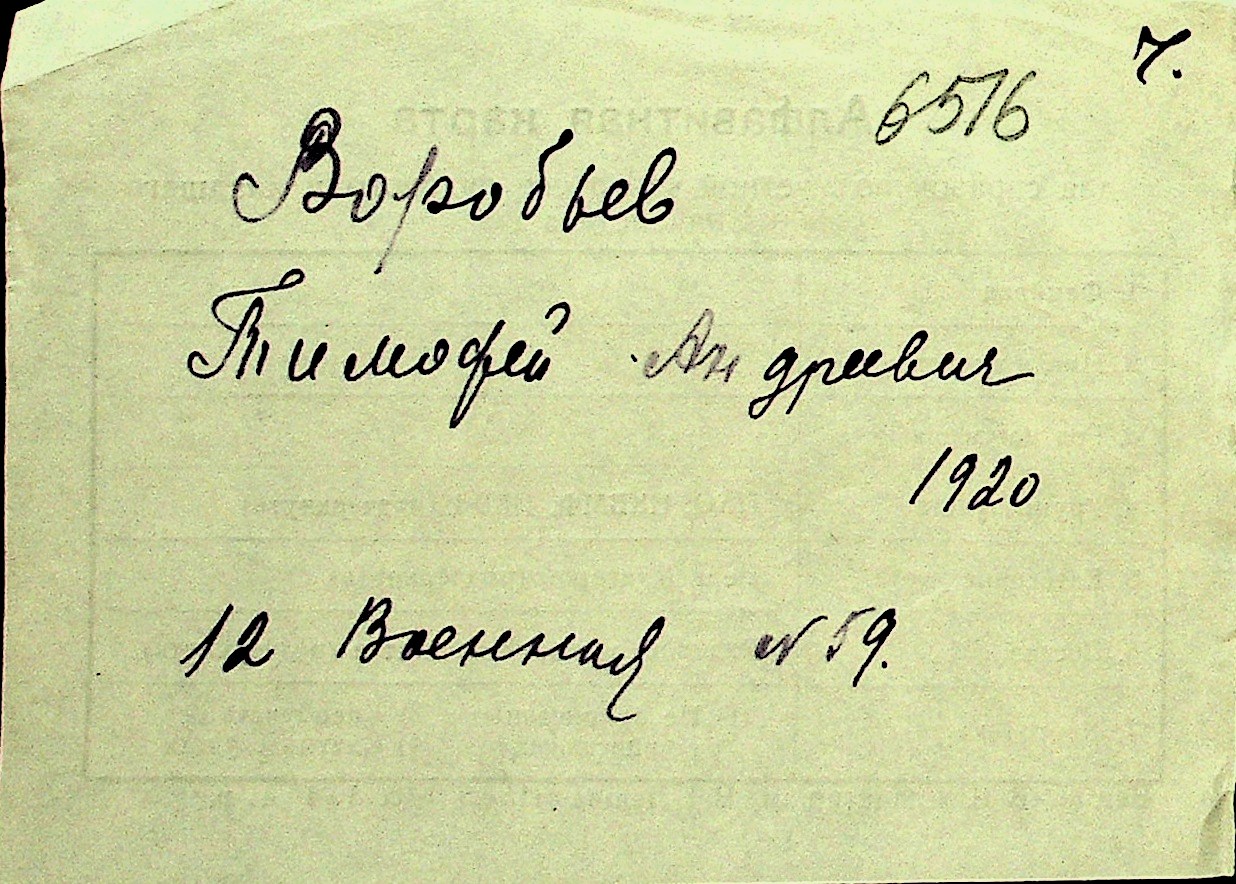 7.
6576
Воробьев
Тимофей Андреевич
1920
12 Военная № 59.